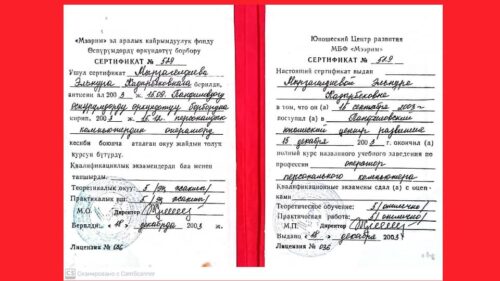 «Мээрим» эл аралык кайрымдуулук фонду
Өспүрүмдөрдү өркүндөтүү борбору
СЕРТИФИКАТ № 549
Ушул сертификат
Эльнура Кадырбековнага берилди,
анткени ал 2003 ж. 15.09.
өспүрүмдөрдү өркүндөтүү борборуна
кирип, 2003 ж. 15.12. персоналдык
компьютердин оператору
кесиби боюнча атадан окуу жайдын толук
курсун бүтүрдү.
Квалификациялык экзамендерди баа менен
тапшырды.
Теоретикалык окуу: 5 /эң жакшы/
Практикалык иш: 5 /эң жакшы/
М.О. Директор
Берилди: «18» декабрь 2003 ж.
Лицензия № 036
Юношеский Центр развития
МБФ «Мээрим»
СЕРТИФИКАТ № 549
Настоящий сертификат выдан
Эльнура
Кадырбековна
в том, что он (а) 15 сентября 2003 г.
поступил (а) в Панфиловский
юношеский центр развития
15 декабря 2003 г. окончил (а)
полный курс названного учебного заведения по
профессии оператор
персонального компьютера
Квалификационные экзамены сдал (а) с оцен-
ками.
Теоретическое обучение: 5 /отлично/
Практическая работа: 5 /отлично/
М.П. Директор
Выдано «18» декабря 2003 г.
Лицензия № 036
CS Сканировано с CamScanner